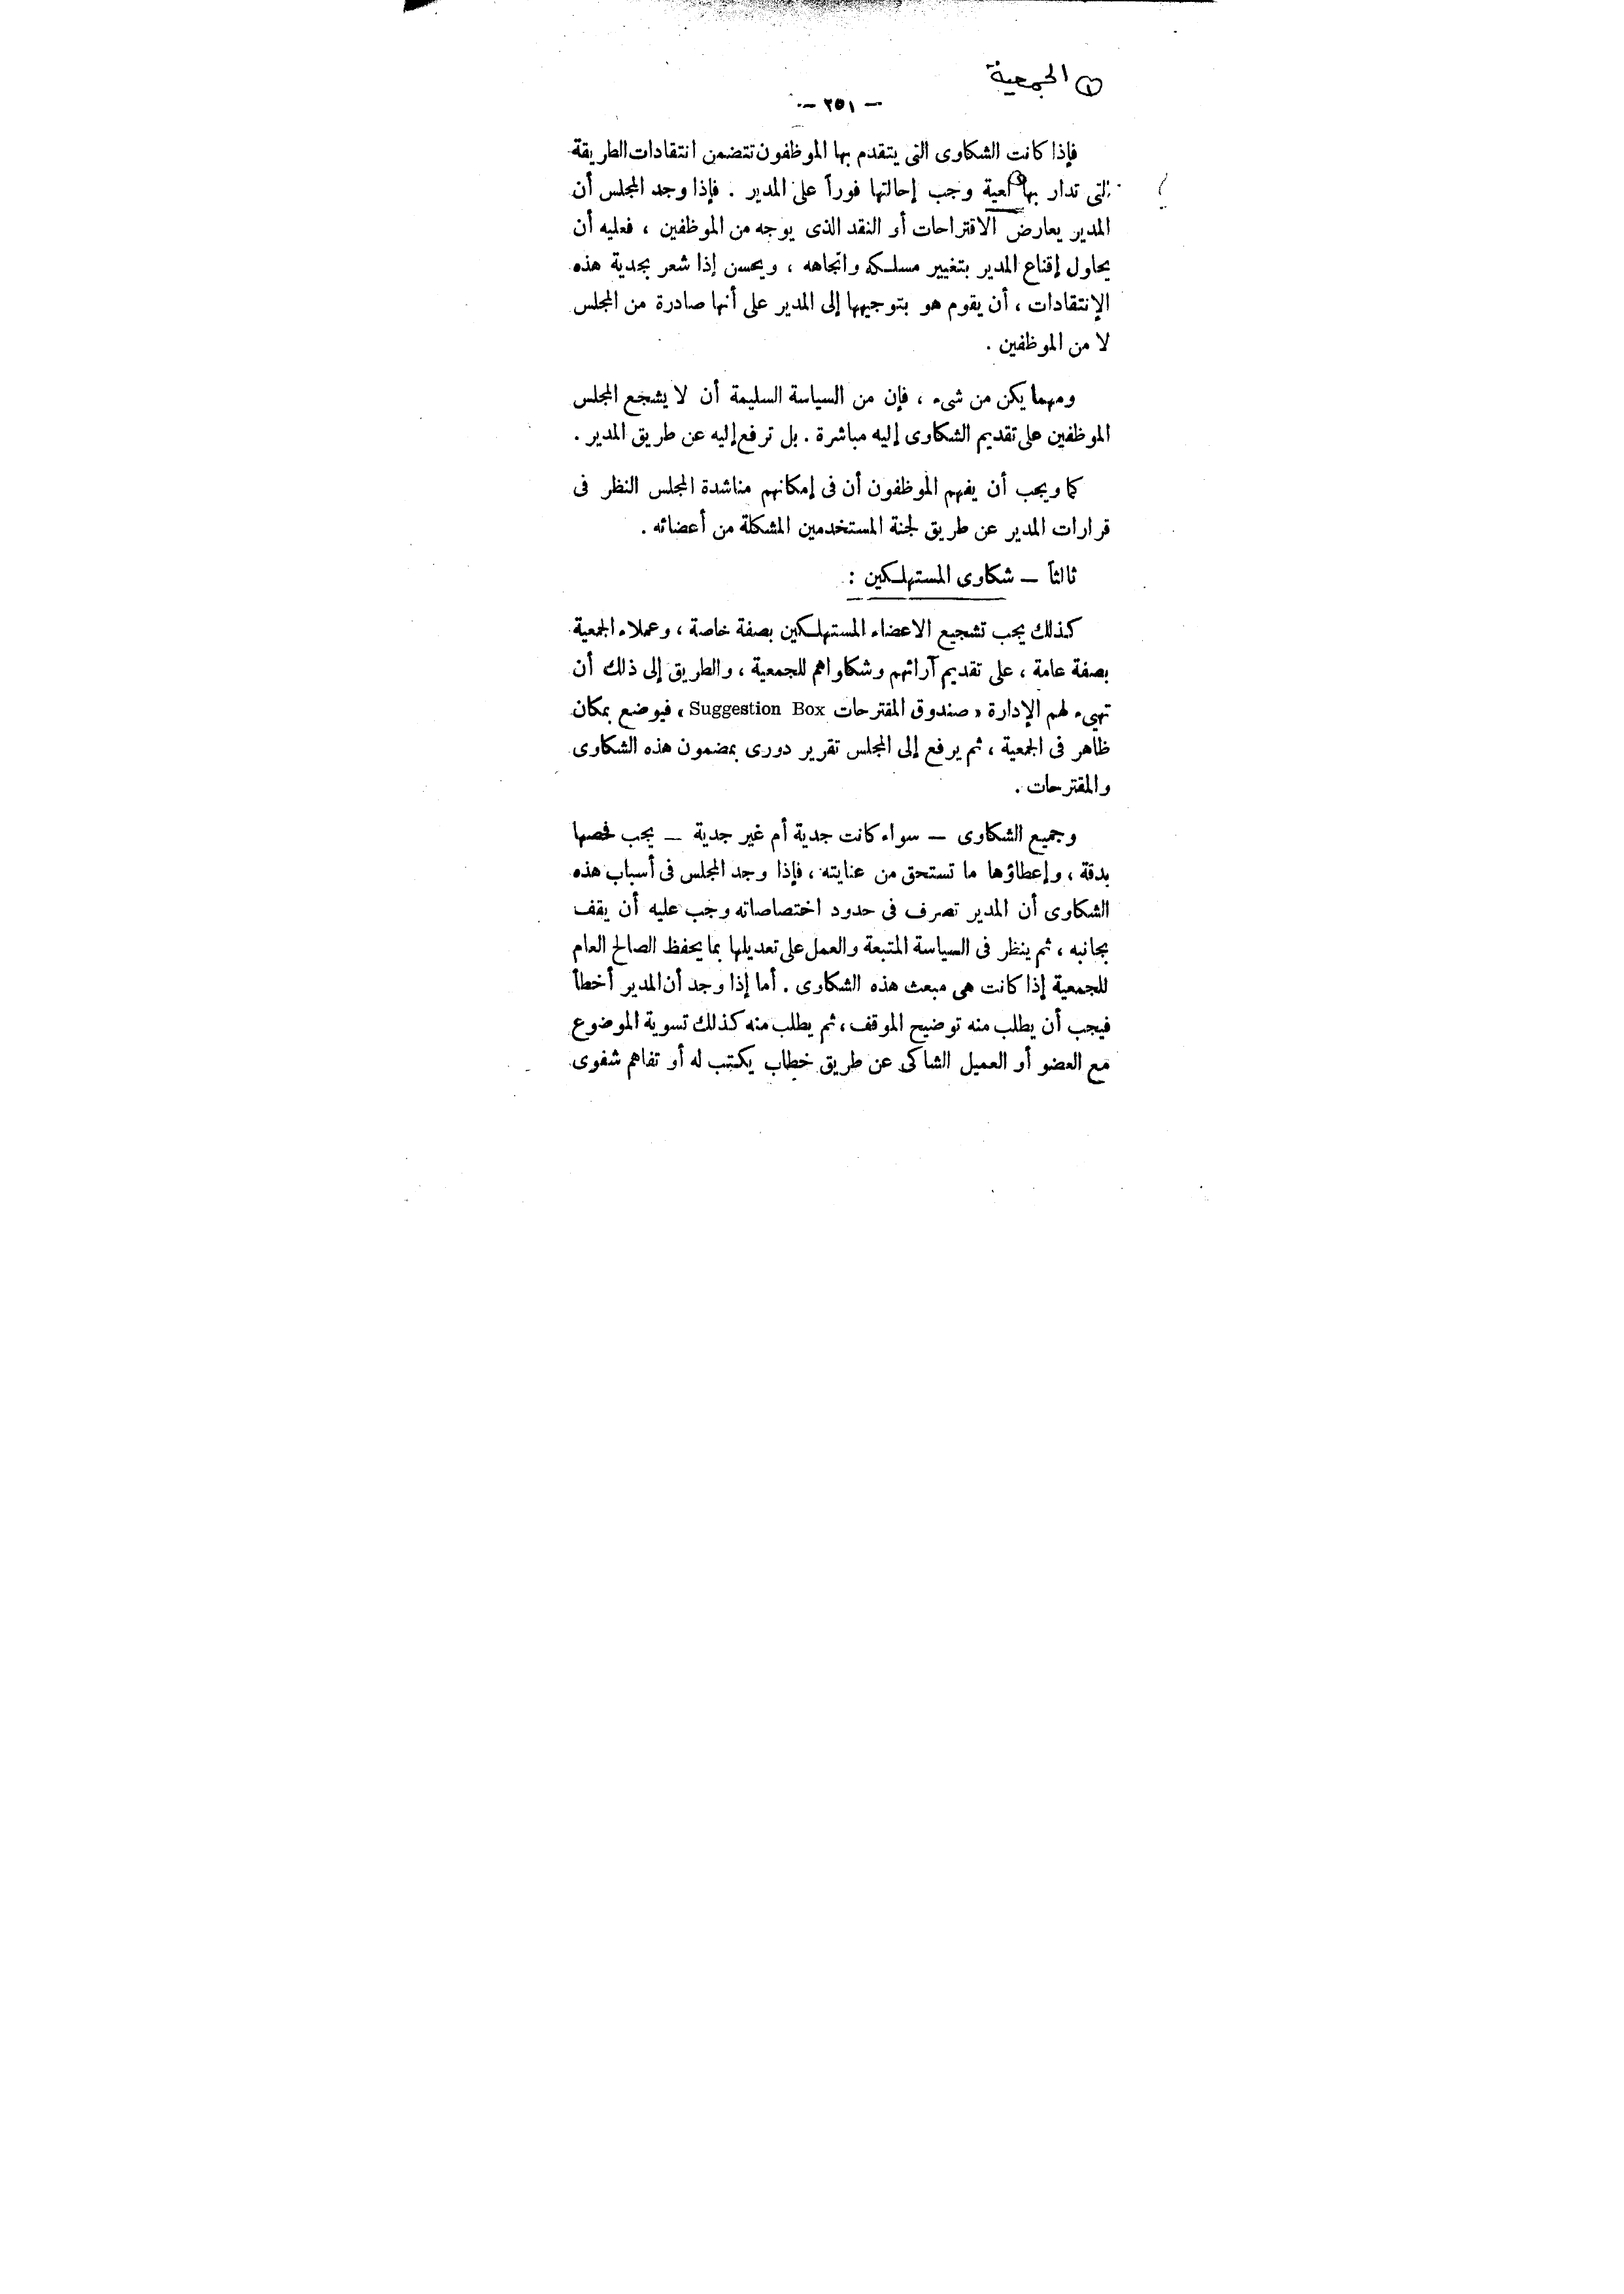 ① الجمعية
— ٢٥١ —
فإذا كانت الشكاوى التى يتقدم بها الموظفون تتضمن انتقادات الطريقة
التى تدار بها لعية وجب إحالتها فوراً على المدير . فإذا وجد المجلس أن
المدير يعارض الاقتراحات أو النقد الذى يوجه من الموظفين ، فعليه أن
يحاول إقناع المدير بتغيير مسلكه واتجاهه ، ويحسن إذا شعر بجدية هذه
الإنتقادات ، أن يقوم هو بتوجيهها إلى المدير على أنها صادرة من المجلس
لا من الموظفين .
ومهما يكن من شىء ، فإن من السياسة السليمة أن لا يشجع المجلس
الموظفين على تقديم الشكاوى إليه مباشرة . بل ترفع إليه عن طريق المدير .
كما ويجب أن يفهم الموظفون أن فى إمكانهم مناشدة المجلس النظر فى
قرارات المدير عن طريق لجنة المستخدمين المشكلة من أعضائه .
ثالثاً — شكاوى المستهلكين :
كذلك يجب تشجيع الاعضاء المستهلكين بصفة خاصة ، وعملاء الجمعية
بصفة عامة ، على تقديم آرائهم وشكاواهم للجمعية ، والطريق إلى ذلك أن
تهيء لهم الإدارة « صندوق المقترحات Suggestion Box » فيوضع بمكان
ظاهر فى الجمعية ، ثم يرفع إلى المجلس تقرير دورى بمضمون هذه الشكاوى
والمقترحات .
وجميع الشكاوى — سواء كانت جدية أم غير جدية — يجب فحصها
بدقة ، وإعطاؤها ما تستحق من عنايته ، فإذا وجد المجلس فى أسباب هذه
الشكاوى أن المدير تصرف فى حدود اختصاصاته وجب عليه أن يقف
بجانبه ، ثم ينظر فى السياسة المتبعة والعمل على تعديلها بما يحفظ الصالح العام
للجمعية إذا كانت هى مبعث هذه الشكاوى . أما إذا وجد أن المدير أخطأ
فيجب أن يطلب منه توضيح الموقف ، ثم يطلب منه كذلك تسوية الموضوع
مع العضو أو العميل الشاكى عن طريق خطاب يكتب له أو تفاهم شفوى